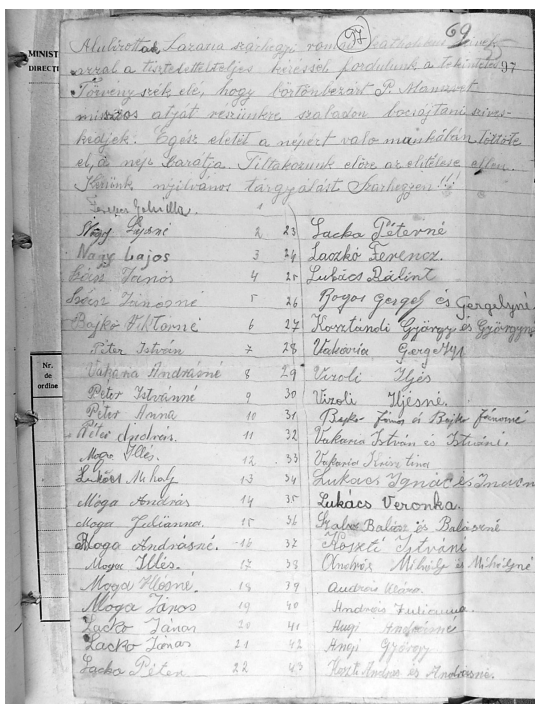 97
69
97
MINIST
DIRECŢI
Nr.
de
ordine
Alulírottak Lazarea szárhegyi római katholikus hívek
azzal a tiszteletteljes kéréssel fordulunk a tekintetes
Törvényszék elé, hogy börtönbezárt P.
missiós atyját részünkre szabadon bocsájtani szives-
kedjék. Egész életét a népért való munkálán töltötte
el, a nép barátja. Tiltakozunk előre az elitélése ellen.
Kérünk nyilvános tárgyalást Szárhegyen!!!
1
2
Nagy Lajos 3
János 4
Jánosné 5
Bajkó Viktorné 6
Péter István 7
Vakaria Andrásné 8
Péter Istvánné 9
Péter Anna 10
Péter András. 11
Moga Illés. 12
Lukács Mihaly 13
Móga András 14
Moga Juliánna. 15
Moga Andrásné. 16
Moga Illés. 17
Moga Illésné. 18
Móga János 19
Lackó János 20
Lackó János 21
Lacka Péter 22
23 Lacka Péterné
24 Laczkó Ferencz.
25 Lukács Bálint
26 Bogos Gergely és Gergelyné.
27 Kosztándi György és Györgyné
28 Vakaria Gergely
29 Vizoli Iljés
30 Vizoli Iljésné.
31 Bajko János és Bajko Jánosné
32 Vakaria István és Istváni.
33 Vakaria Krisztina
34 Lukacs Ignác és Ignácn
35 Lukács Veronka.
36 Szabos Balász és Balászné
37 Koszti Istváni
38 András Mihály és Mihályné
39 András Klára.
40 András Julianna.
41 Angi Andrásné
42 Angi György
43 Koszti András és Andrásné.